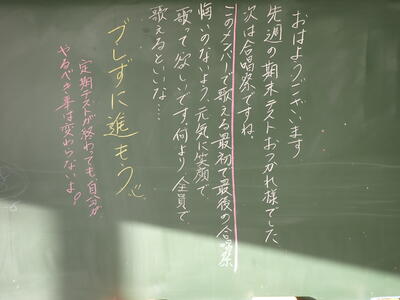 おはようございます
先週の期末テストおつかれ様でした
次は合唱祭ですね。
このメンバーで歌える最初で最後の合唱祭
悔いのないよう、元気に笑顔で
歌って欲しいです。何より全員で
歌えるといいな…
ブレずに進もう
定期テストが終わっても自分が
やるべき事は変わらないよ？